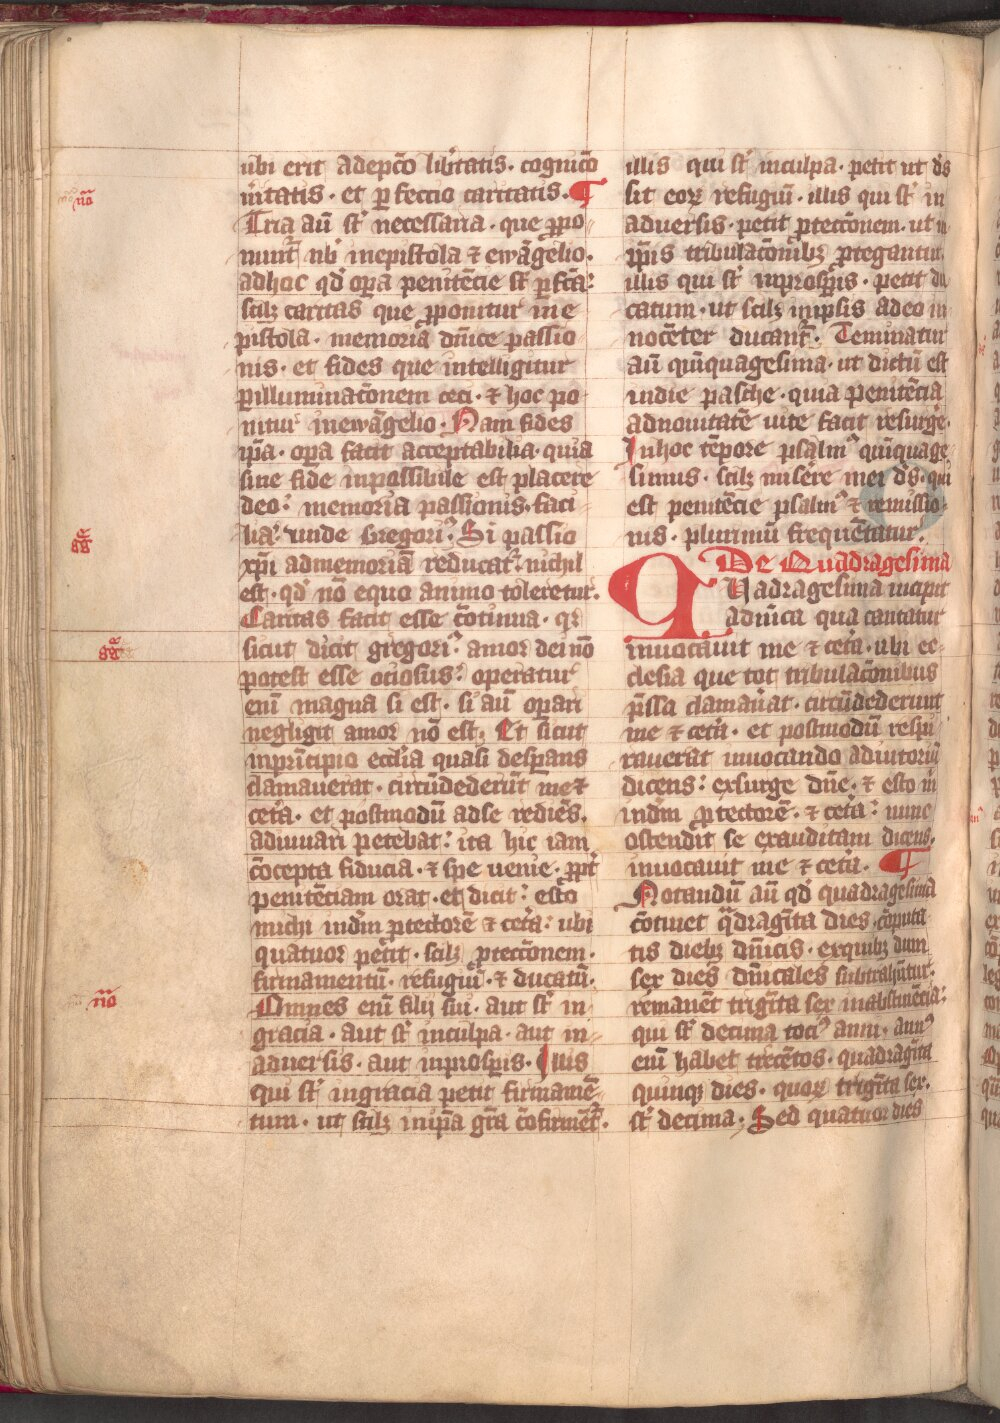 ubi erit adepc̄o lib̄tatis · cognic̄o
ūitatis · et perfeccio caritatis · ¶
Tria aū st̄ necessaria · que ꝓpo
nunt̄ nb̄ in epistola ⁊ ewāgelio ·
ad hoc qd̄ oꝑa penitēcie st̄ ꝑfc̄a :
scilꝫ caritas que ꝓponitur in e
pistola · memoria dn̄ice passio
nis · et fides que intelligitur
ꝑ illuminac̄onem ceci · ⁊ hoc po
nitur in ewāgelio · Nam fides
ip̄a · oꝑa facit acceptabilia · quia
sine fide inpossibile est placere
deo : memoria passionis · faci
lia : unde Gregoriꝰ · Si passio
xp̄i ad memoriā reducat̄ : nichil
est · qd̄ nō equo animo toleretur ·
Caritas facit esse c̄otinua · qr
sicut dicit gregoriꝰ : amor dei nō
potest esse ociosus : operatur
enī magna si est · si aū opari
negligit amor nō est · Et sicut
in prīcipio ecclīa quasi desꝑans
clamauerat · circūdederūt me ⁊
cetā · et postmodū ad se rediēs ·
adiuuari petebat : ita hic iam
c̄ocepta fiducia · ⁊ spe uenie · ꝓpt̄
penitēciam orat · et dicit : esto
michi in dm̄ ꝓtectorē ⁊ cetā : ubi
quatuor petit · scilꝫ ꝓtecc̄onem ·
firmamentū · refugiū · ⁊ ducatū ·
Omnes enī filij sui · aut st̄ in
gracia · aut st̄ in culpa · aut in
aduersis · aut in prosꝑis · Illis
qui st̄ in gracia petit firmamē
tum · ut scilꝫ in ip̄a gr̄a c̄ofirmēt̄ ·
illis qui st̄ in culpa · petit ut ds̄
sit eoꝝ refugiū · illis qui st̄ in
aduersis · petit ꝓtecc̄onem · ut in
ip̄is tribulac̄onibꝫ ꝓtegantur ·
illis qui st̄ in prosꝑis · petit du
catum · ut scilꝫ in ipsis a deo in
nocēter ducant̄ · Terminatur
aū quīquagesima · ut dictū est
in die pasche · quia penitēcia
ad nouitatē uite facit resurge ·
In hoc tēpore psalmꝰ quīquage
simus · scilꝫ miserere mei ds̄ · qui
est penitēcie psalmꝰ ⁊ remissio
nis · plurimū frequētatur ·
De Quadragesima
Quadragesima incipit
a dn̄ica qua cantatur
inuocauit me ⁊ cetā · ubi ec
clesia que tot tribulac̄onibus
p̄ssa clamauat · circūdederunt
me ⁊ cetā · et postmodū respi
rauerat inuocando adiutoriū
dicens : exsurge dn̄e · ⁊ esto m̄
in dm̄ ꝓtectorē · ⁊ cetā : nunc
ostendit se exauditam dicens ·
inuocauit me ⁊ cetā · ¶
Notandū aū qd̄ quadragesima
c̄otinet q̄dragīta dies · c̄oputa
tis diebꝫ dn̄icis · ex quibꝫ dum
sex dies dn̄icales subtrahūtur ·
remanēt trigīta sex in abstinēcia :
qui st̄ decima tociꝰ anni · annꝰ
enī habet trecētos · quadragīta
quinqꝫ dies · quoꝝ trigīta sex ·
st̄ decima · Sed quatuor dies